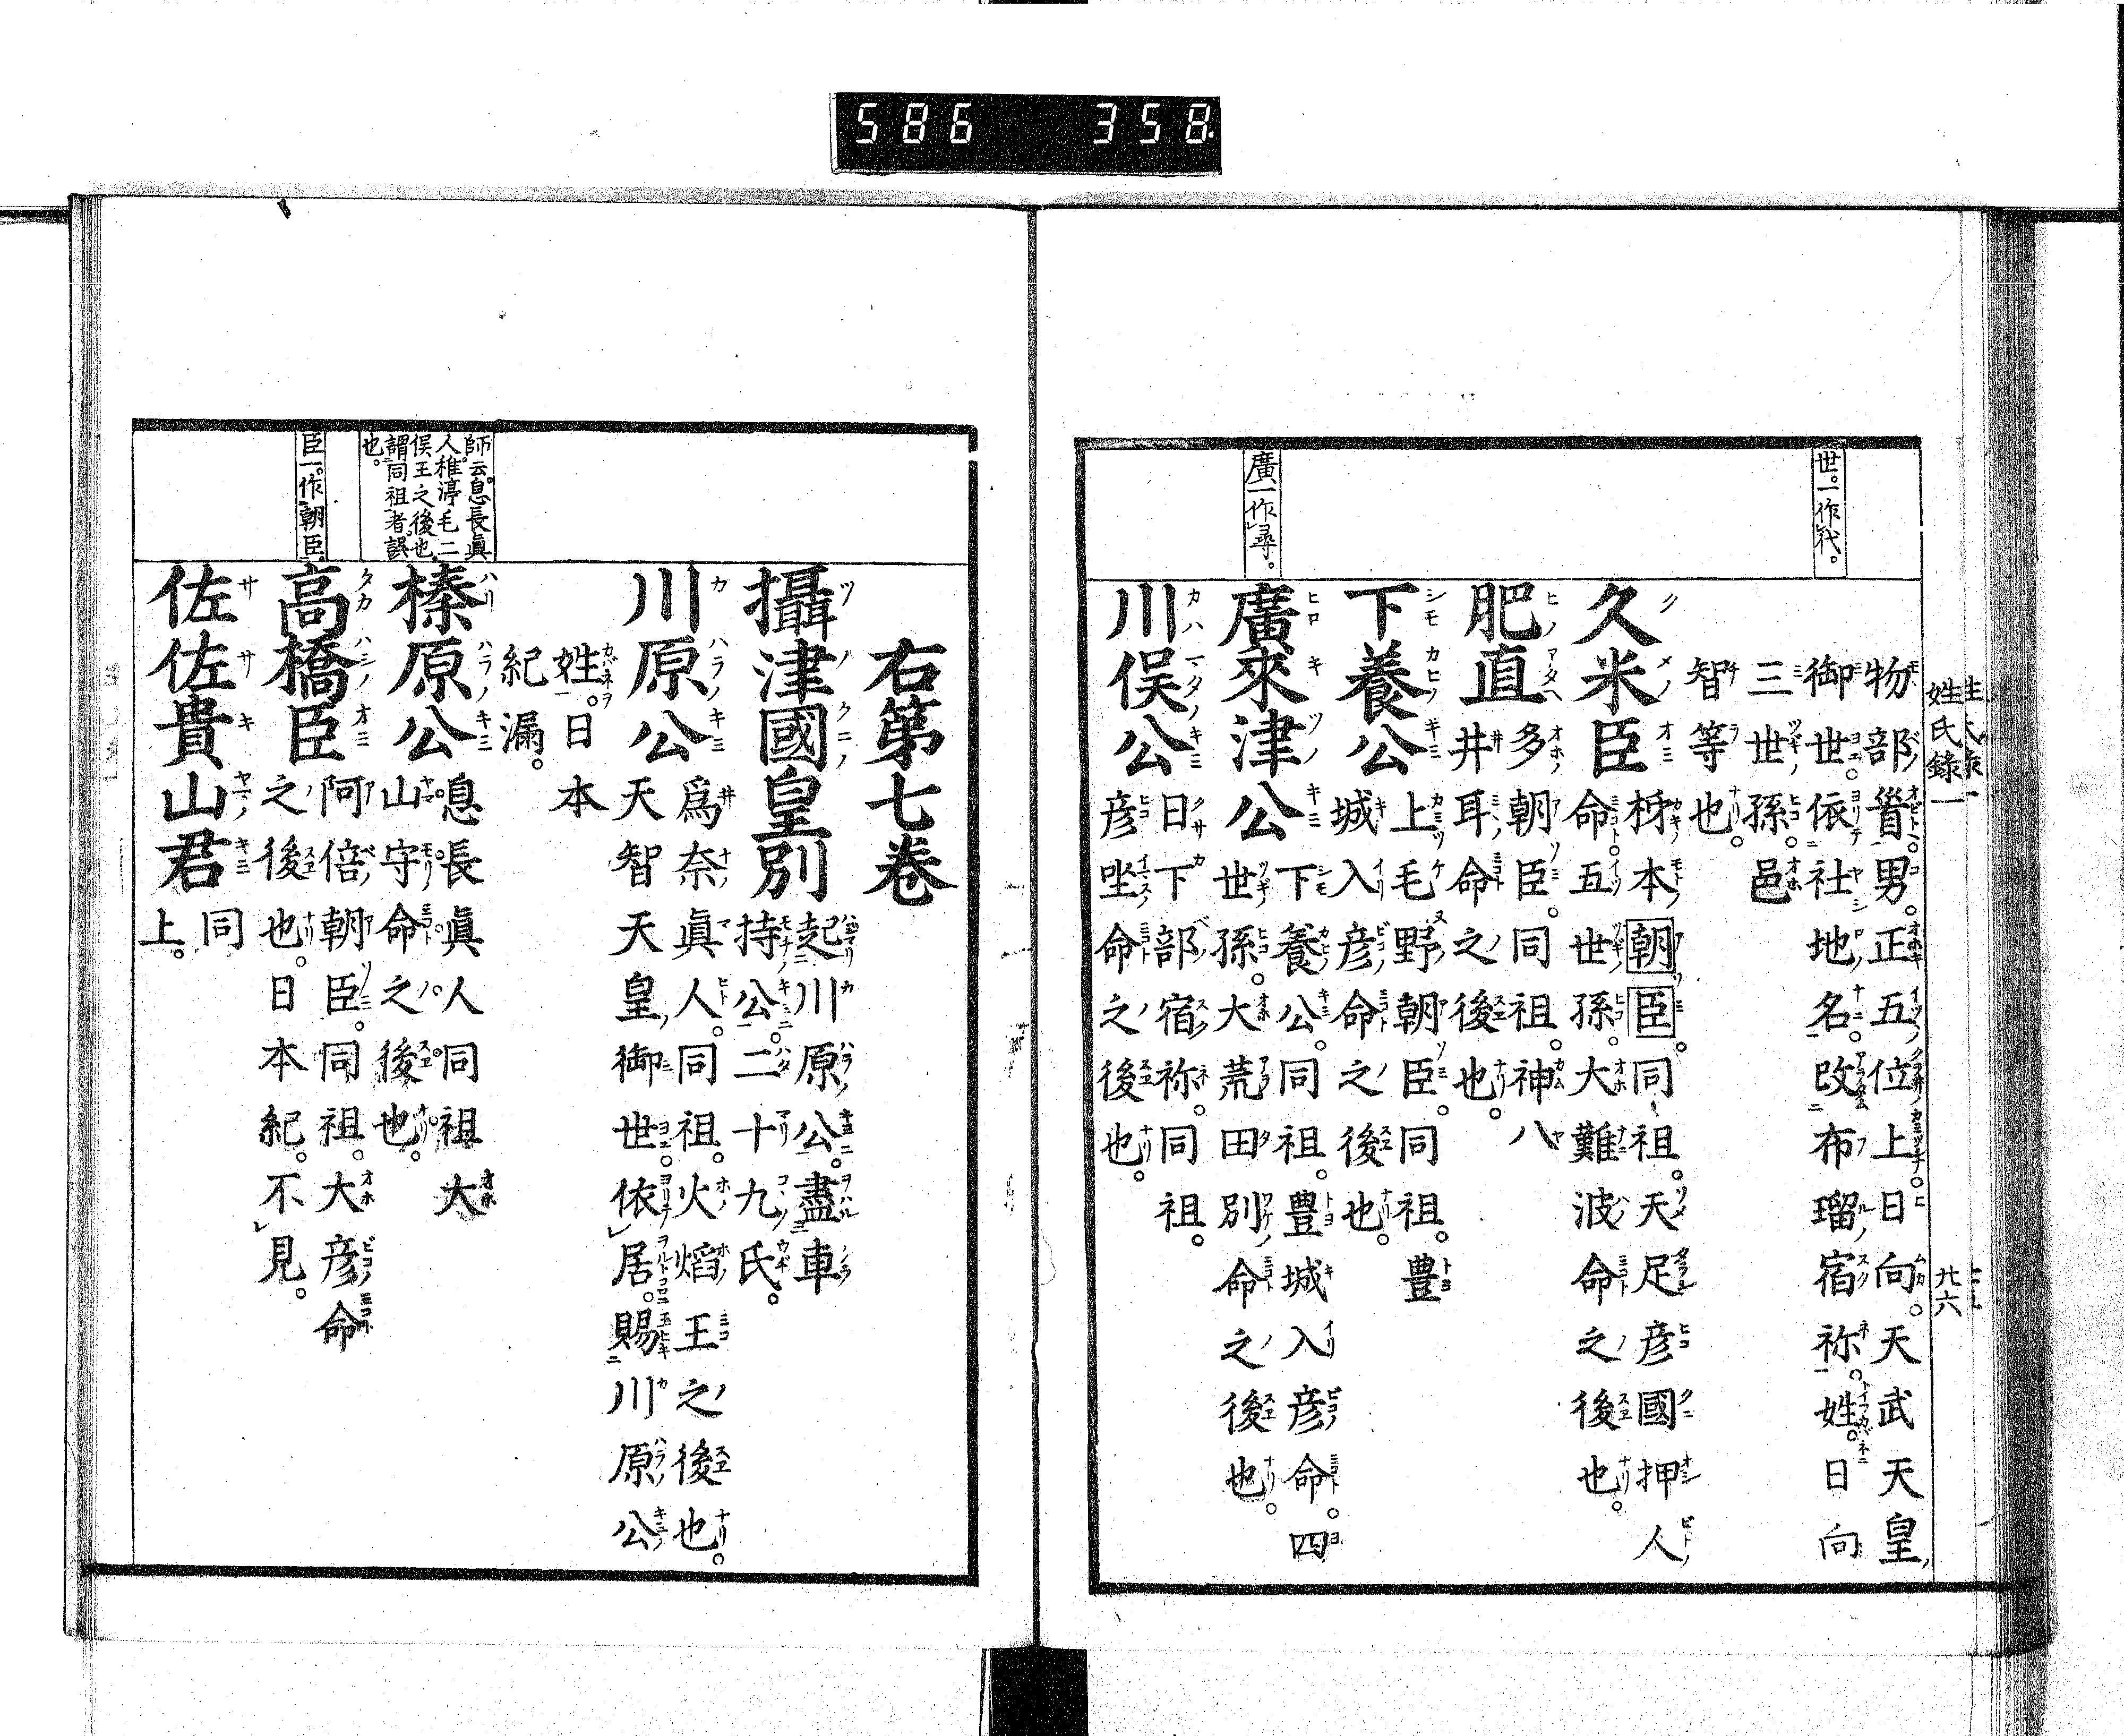 586 358
姓氏錄一 廿六
世。一作代。
物部首。男。正五位上日向。天武天皇
御世。依社地名。改布瑠宿祢。姓。日向
三世孫。邑
智等也。
久米臣
柹本朝臣。同祖。天足彦國押人
命。五世孫。大難波命之後也。
肥直
多朝臣。同祖。神八
井耳命之後也。
下養公
上毛野朝臣。同祖。豊
城入彦命之後也。
廣一作尋。
廣來津公
下養公。同祖。豊城入彦命。四
世孫。大荒田別命之後也。
川俣公
日下部宿祢。同祖。
彦坐命之後也。
右第七卷
攝津國皇別
起川原公。盡車
持公。二十九氏。
川原公
爲奈眞人。同祖。火焰王之後也。
天智天皇御世。依居。賜川原公
姓。日本
紀漏。
師云。息長眞
人。稚渟毛二
俣王之後也
謂同祖者。誤
也。
榛原公
息長眞人同祖大
山守命之後也。
臣一。作朝臣。
高橋臣
阿倍朝臣。同祖。大彦命
之後也。日本紀。不見。
佐佐貴山君
同
上。